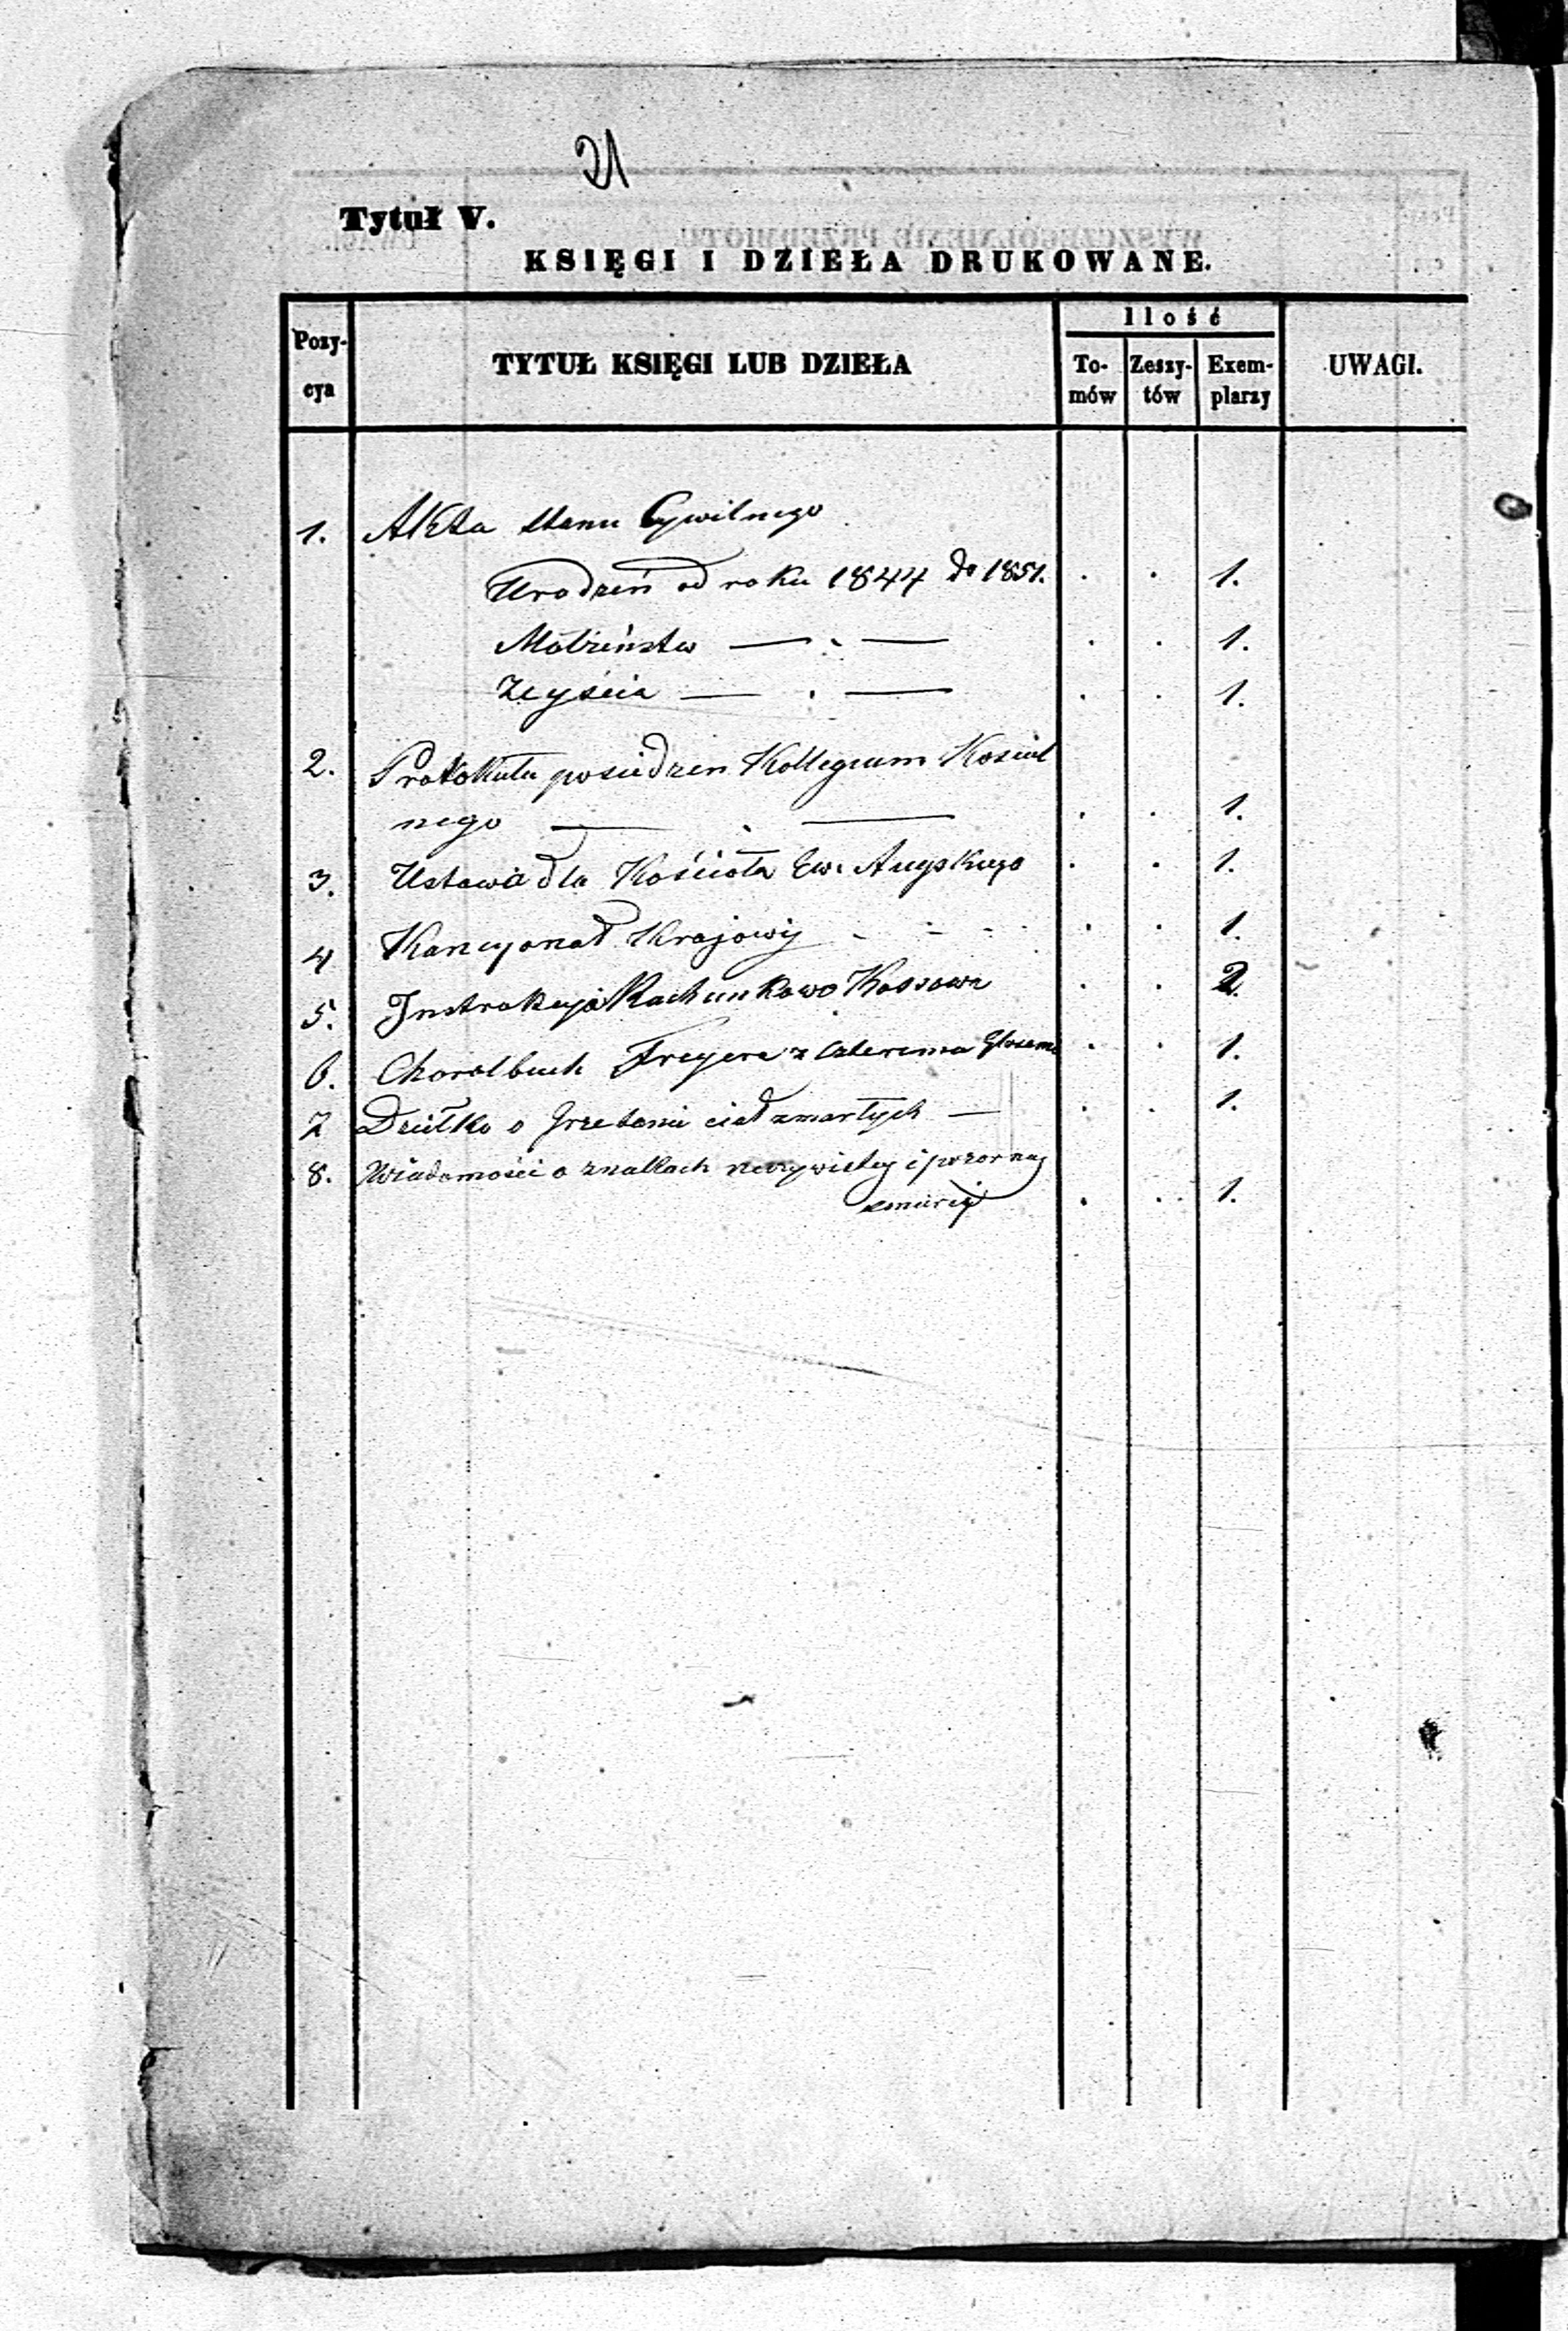 21
Tytuł V.
KSIĘGI I DZIEŁA DRUKOWANE.
Pozy-cya TYTUŁ KSIĘGI LUB DZIEŁA Ilość To-mów Zeszy-tów Exem-plarzy UWAGI.
1. Akta Stanu Cywilnego
Urodzeń od roku 1844 do 1851. . . 1.
Małżeństw — . — . . 1.
Zejścia — . — . . 1.
2. Protokuła posiedzen Kollegium Kosciel
nego — . — . . 1.
3. Ustawa dla Kościoła Ew. Augskiego . . 1.
4 Kancyonał Krajowy - - - . . 1.
5. Instrukcyja Rachunkowo Kassowa . . 2.
6. Choralbuch Freyera z czterema Głosami . . 1.
7 Dziełko o Grzebaniu ciał zmarłych — . . 1.
8. Wiadomości o znakach rzeczywistey i pozorney
smierci . . 1.